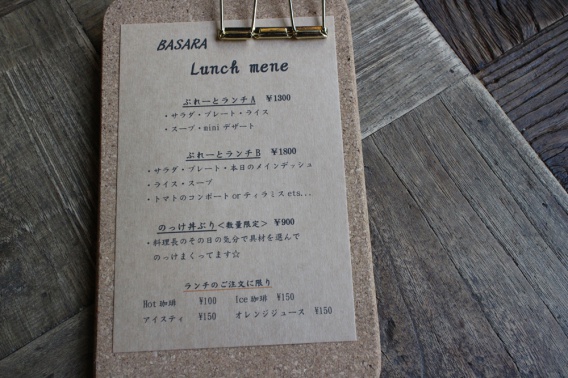 BASARA
Lunch mene
ぷれーとランチA ¥1300
・サラダ・プレート・ライス
・スープ・mini デザート
ぷれーとランチB ¥1800
・サラダ・プレート・本日のメインデッシュ
・ライス・スープ
・トマトのコンポート or ティラミス ets...
のっけ丼ぶり＜数量限定＞ ¥900
・料理長のその日の気分で具材を選んで
のっけまくってます☆
ランチのご注文に限り
Hot 珈琲 ¥100 Ice 珈琲 ¥150
アイスティ ¥150 オレンジジュース ¥150